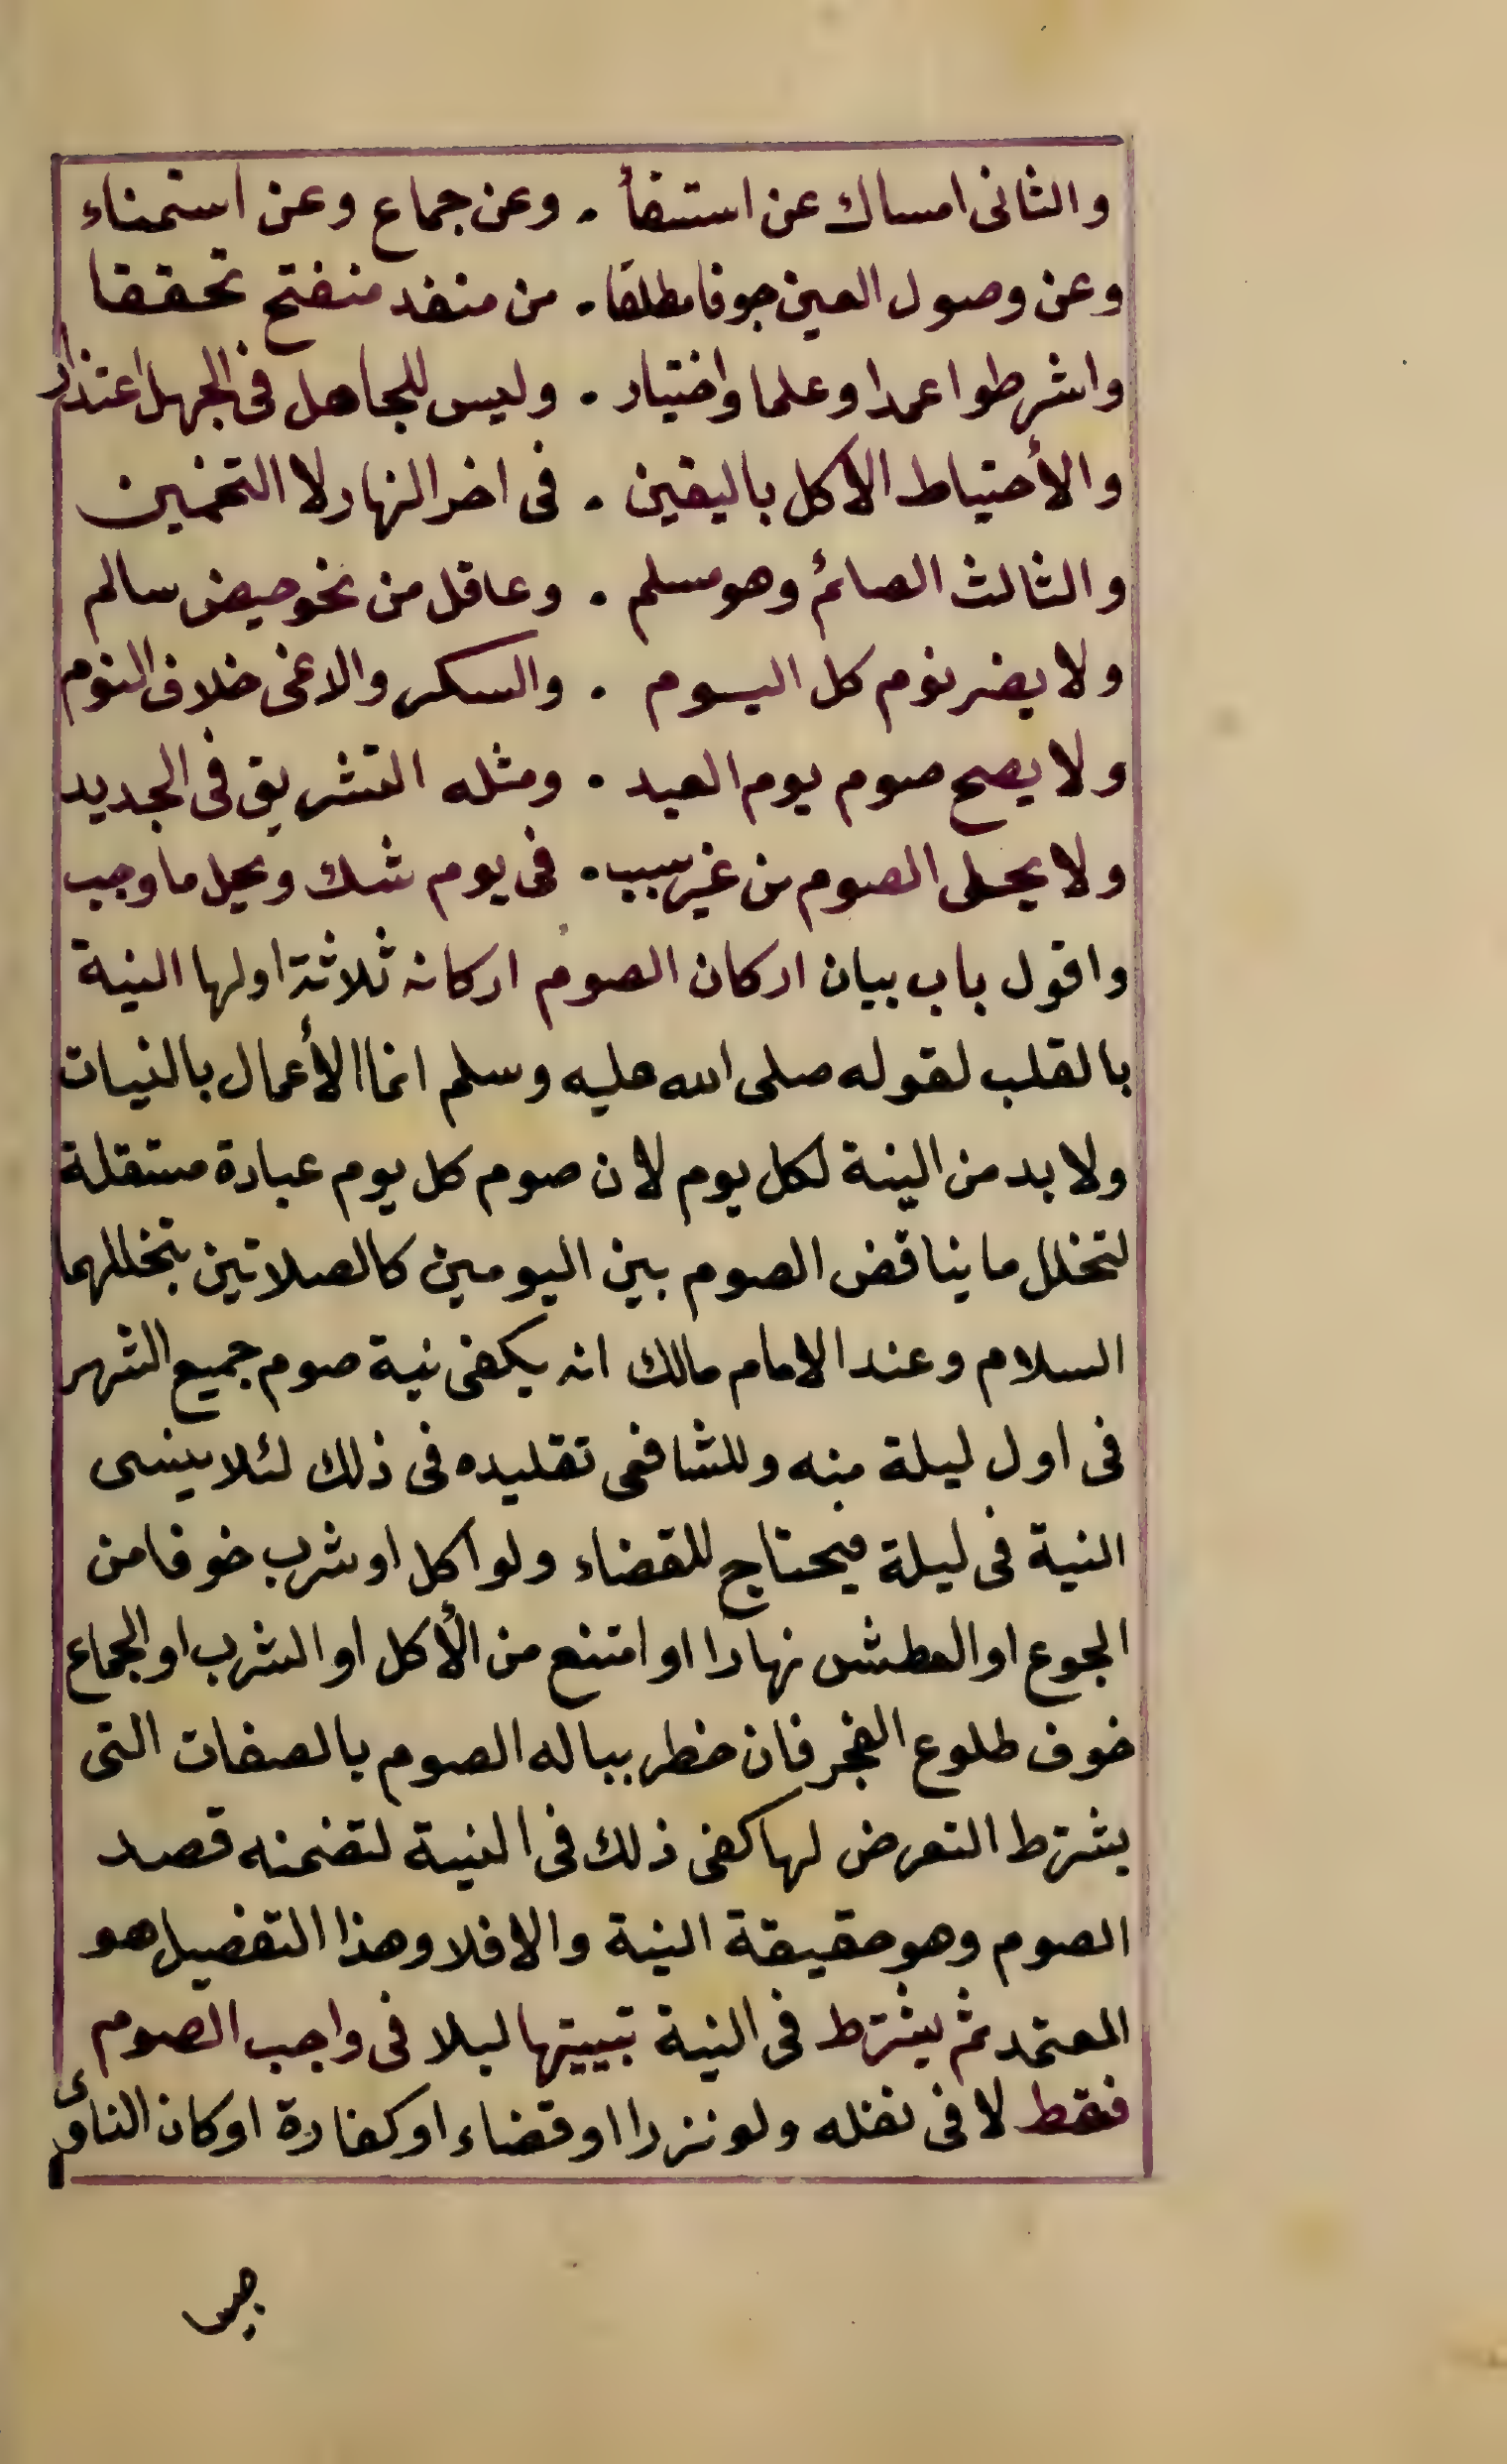 والثانى امساك عن استقأ . وعن جماع وعن استمناء
وعن وصول العين جوفا مطلقا . من منفد منفتح تحققا
واشرطوا عمدا وعلما واختيار . وليس للجاهل فى الجهل اعتذار
والأحتياط الاكل باليقين . فى اخر النهار لا التخمين
والثالث الصائم وهو مسلم . وعاقل من نحو حيض سالم
ولا يضر نوم كل اليوم . والسكر والاغمى خلاف النوم
ولا يصح صوم يوم العيد . ومثله التشريق فى الجديد
ولا يحلى الصوم من غير سبب . فى يوم شك ويحل ما وجب
واقول باب بيان اركان الصوم اركانه ثلاثة اولها النية
بالقلب لقوله صلى الله عليه وسلم انما الأعمال بالنيات
ولا بد من النية لكل يوم لان صوم كل يوم عبادة مستقلة
لتخلل ما يناقض الصوم بين اليومين كالصلاتين يتخللهما
السلام وعند الامام مالك انه يكفى نية صوم جميع الشهر
فى اول ليلة منه وللشافعى تقليده فى ذلك لئلا ينسى
النية فى ليلة فيحتاج للقضاء ولو اكل او شرب خوفا من
الجوع او العطش نهارا او امتنع من الأكل او الشرب او الجماع
خوف طلوع الفجر فان خطر بباله الصوم بالصفات التى
يشترط التعرض لها كفى ذلك فى النية لتضمنه قصد
الصوم وهو حقيقة النية والا فلا وهذا التفصيل هو
المعتمد ثم يشترط فى النية تبييتها ليلا فى واجب الصوم
فقط لا فى نفله ولو نزرا او قضاء او كفارة او كان الناوى